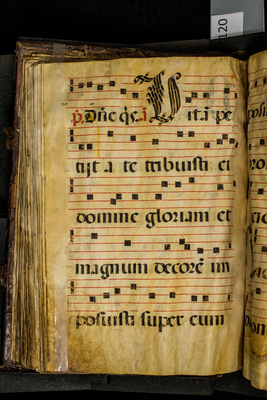 120
p. Dñe q̃s. añ Vitã pe
tijt a te tribuisti ei
domine gloriam et
magnum decorẽ im
posuisti super eum